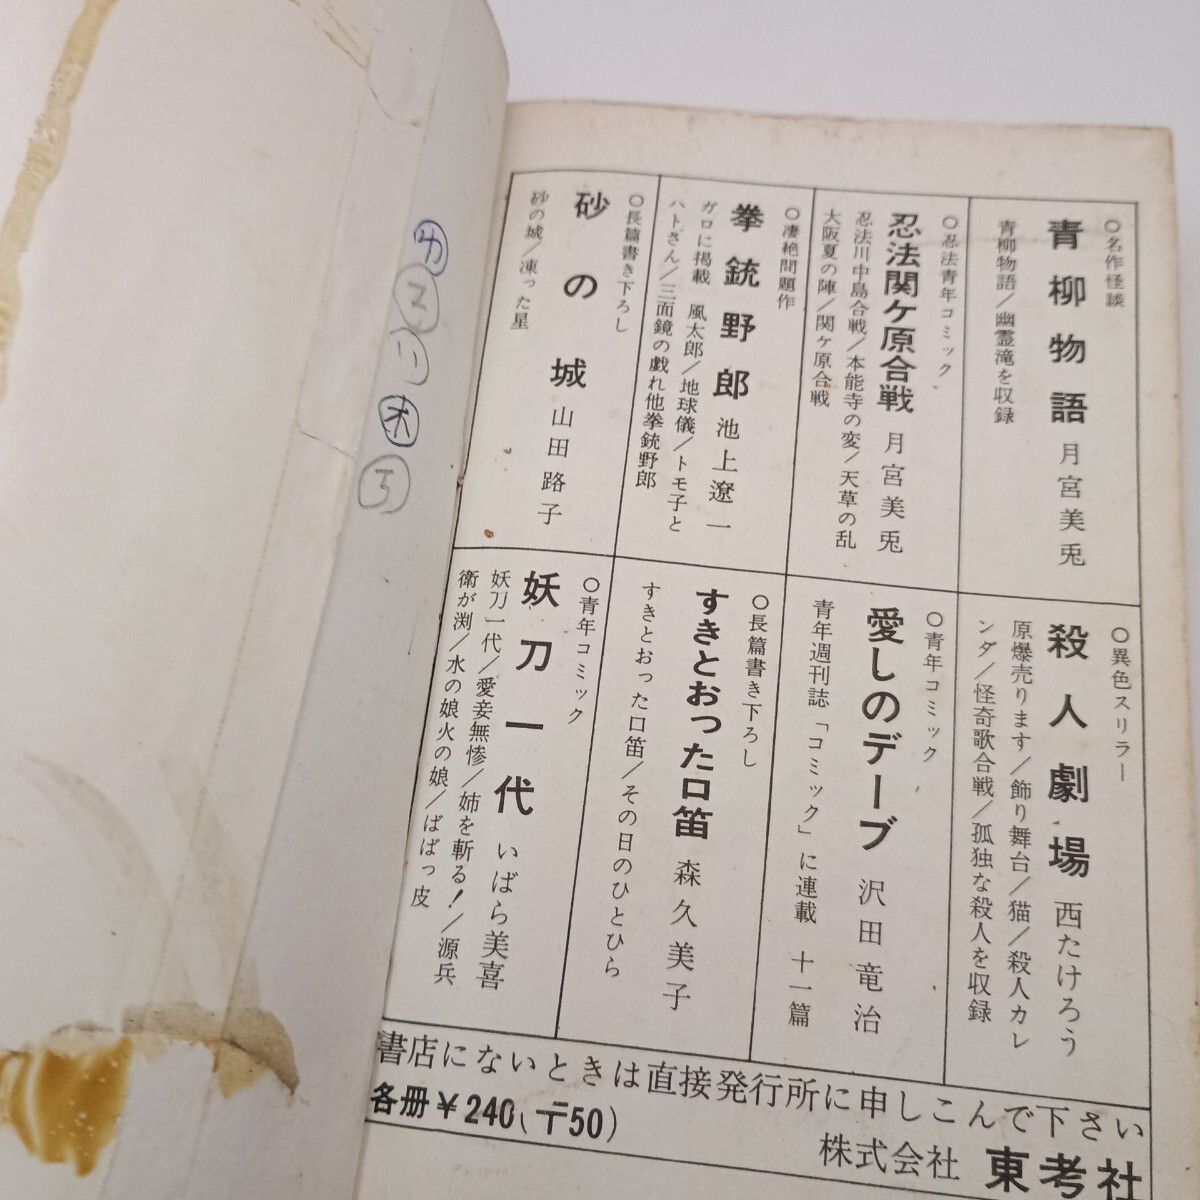 ○名作怪談
青柳物語 月宮美兎
青柳物語/幽霊滝を収録
○忍法青年コミック
忍法関ケ原合戦 月宮美兎
忍法川中島合戦/本能寺の変/天草の乱
大阪夏の陣/関ヶ原合戦
○凄絶問題作
拳銃野郎 池上遼一
ガロに掲載 風太郎/地球儀/トモ子と
ハトさん/三面鏡の戯れ他拳銃野郎
○長篇書き下ろし
砂の城 山田路子
砂の城/凍った星
○異色スリラー
殺人劇場 西たけろう
原爆売ります/飾り舞台/猫/殺人カレ
ンダ/怪奇歌合戦/孤独な殺人を収録
○青年コミック
愛しのデーブ 沢田竜治
青年週刊誌「コミック」に連載 十一篇
○長篇書き下ろし
すきとおった口笛 森久美子
すきとおった口笛/その日のひとひら
○青年コミック
妖刀一代 いばら美喜
妖刀一代/愛妾無惨/姉を斬る!/源兵
衛が渕/水の娘火の娘/ばばっ皮
書店にないときは直接発行所に申しこんで下さい
各冊¥240(〒50)
株式会社 東考社